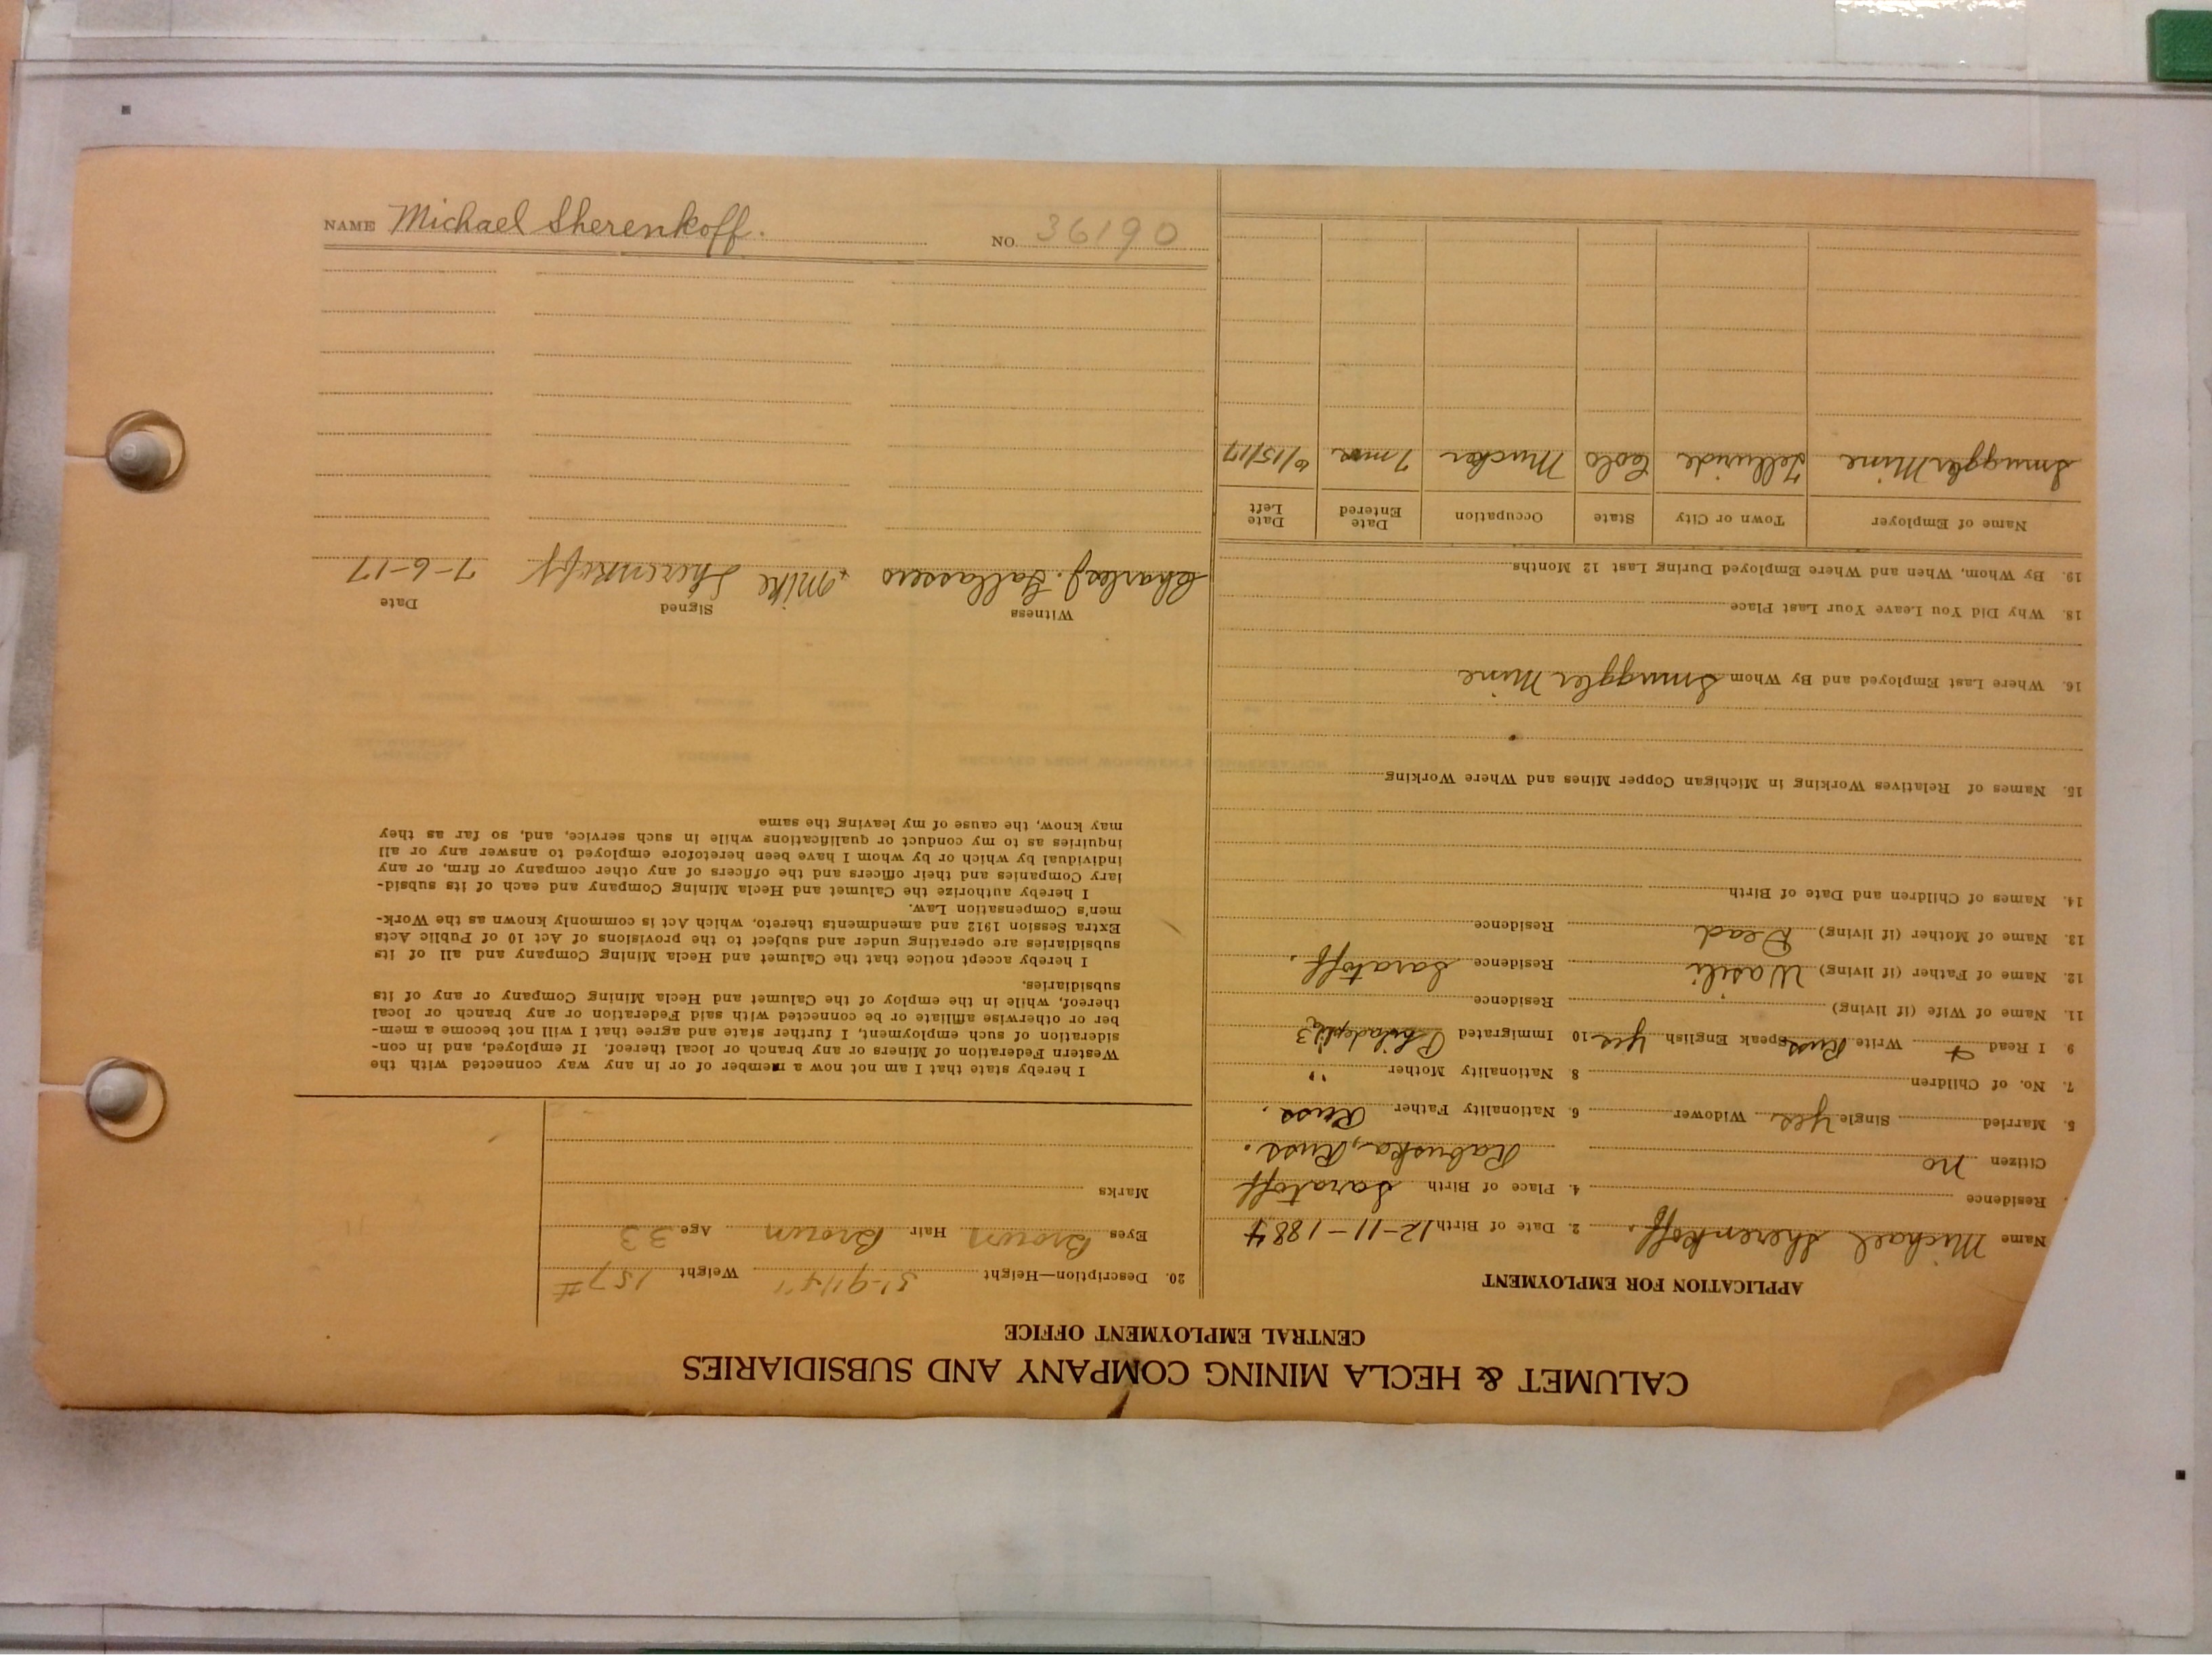 NAME Michael Sherenkoff. NO. 36190
CALUMET & HECLA MINING COMPANY AND SUBSIDIARIES
CENTRAL EMPLOYMENT OFFICE
APPLICATION FOR EMPLOYMENT
Name Michael Sherenkoff. 2. Date of Birth 12-11-1884
Residence 4. Place of Birth Saratoff
Citizen no Rabuska, Russ.
5. Married Single Yes Widower 6. Nationality Father Russ.
7. No. of Children 8. Nationality Mother "
9. I Read + Write Russ Speak English Yes 10 Immigrated Philadephia 3
11. Name of Wife (if living) Residence
12. Name of Father (if living) Wasili Residence Saratoff.
13. Name of Mother (if living) Dead Residence
14. Names of Children and Date of Birth
15. Names of Relatives Working in Michigan Copper Mines and Where Working
16. Where Last Employed and By Whom Smuggler Mine
18. Why Did You Leave Your Last Place
19. By Whom, When and Where Employed During Last 12 Months
Name of Employer Town or City State Occupation Date Entered Date Left
Smuggler Mine Telluride Colo Mucker 7 mos 6/15/17
20. Description—Height 5'-9 1/4" Weight 157#
Eyes Brown Hair Brown Age 33
Marks
I hereby state that I am not now a member of or in any way connected with the
Western Federation of Miners or any branch or local thereof. If employed, and in con-
sideration of such employment, I further state and agree that I will not become a mem-
ber or otherwise affiliate or be connected with said Federation or any branch or local
thereof, while in the employ of the Calumet and Hecla Mining Company or any of its
subsidiaries.
I hereby accept notice that the Calumet and Hecla Mining Company and all of its
subsidiaries are operating under and subject to the provisions of Act 10 of Public Acts
Extra Session 1912 and amendments thereto, which Act is commonly known as the Work-
men's Compensation Law.
I hereby authorize the Calumet and Hecla Mining Company and each of its subsid-
iary Companies and their officers and the officers of any other company or firm, or any
individual by which or by whom I have been heretofore employed to answer any or all
inquiries as to my conduct or qualifications while in such service, and, so far as they
may know, the cause of my leaving the same
Witness Signed Date
Charles J. + Mike Sherenkoff 7-6-17